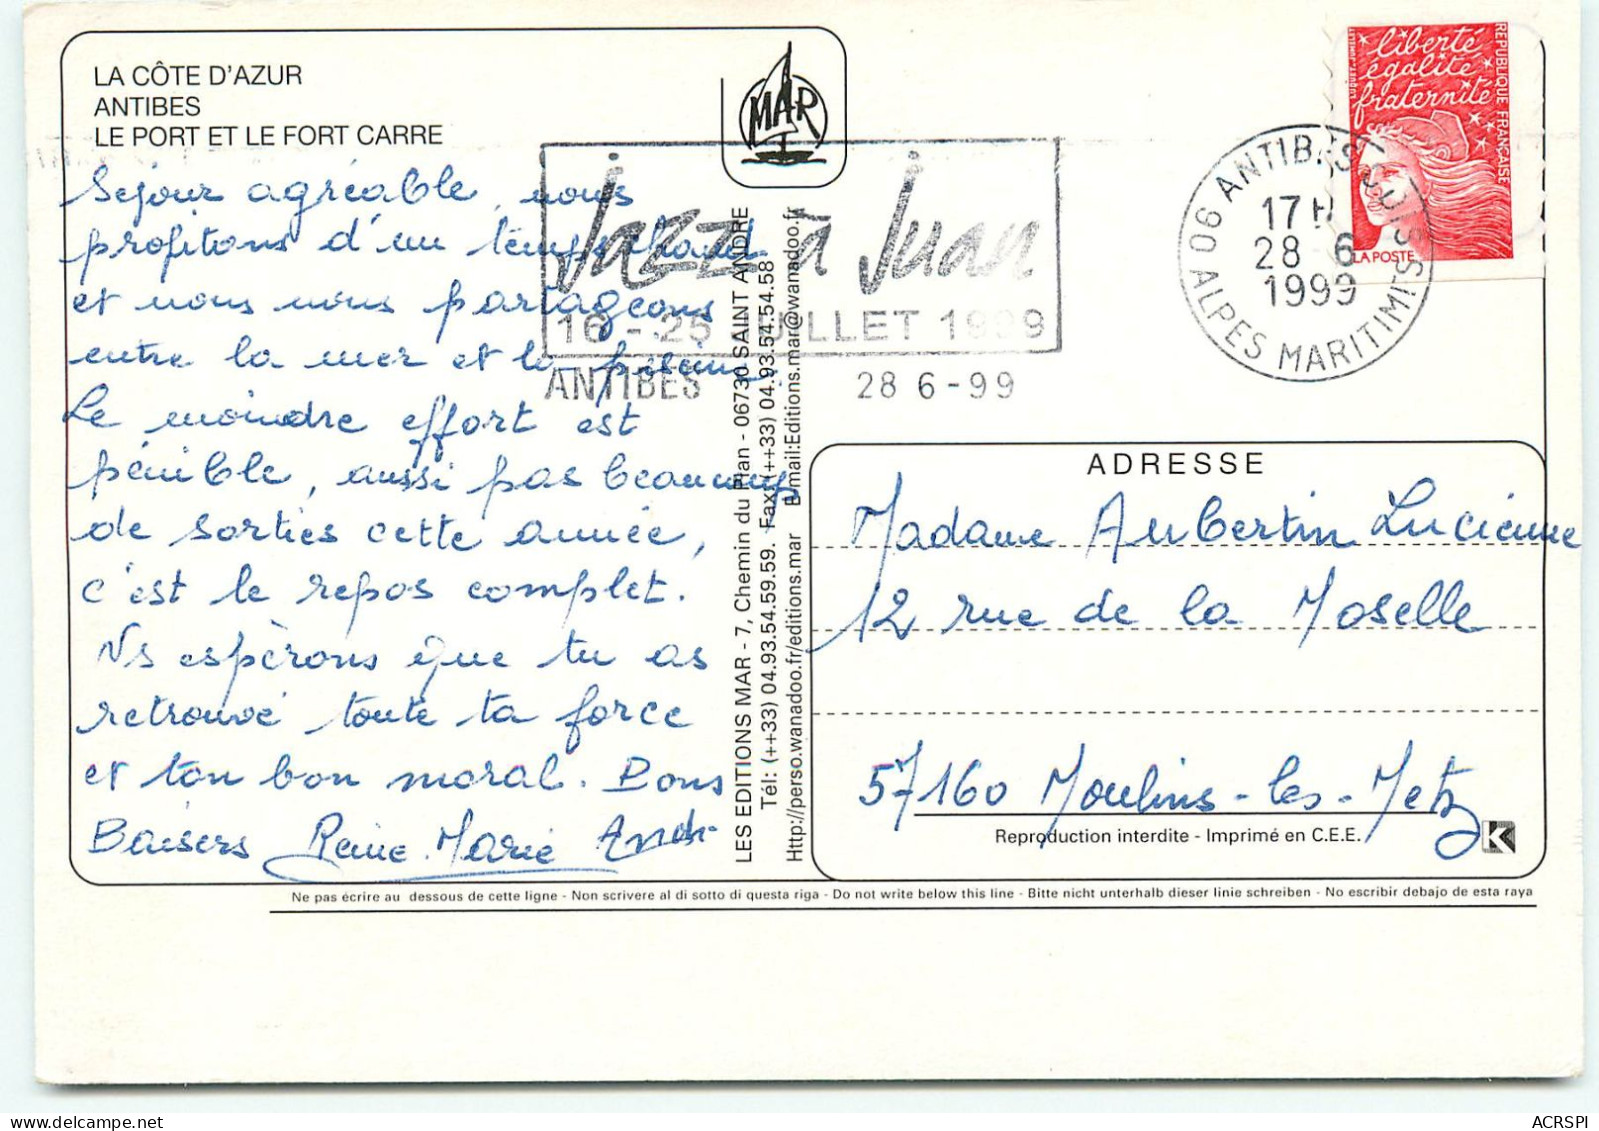 LA CÔTE D'AZUR
ANTIBES
LE PORT ET LE FORT CARRE
Séjour agréable, nous
profitons d'un temps chaud
et nous nous partageons
entre la mer et la piscine,
Le moindre effort est
pénible, aussi pas beaucoup
de sorties cette année,
c'est le repos complet.
Ns espèrons que tu as
retrouvé toute ta force
et ton bon moral. Bons
Baisers Reine. Marie
MAR
Jazz à Juan
16 - 25 JUILLET 1999
ANTIBES 28 6 - 99
LES EDITIONS MAR - 7, Chemin du Plan - 06730 SAINT ANDRE
Tél: (++33) 04.93.54.59.59. Fax: (++33) 04.93.54.54.58
Http://perso.wanadoo.fr/editions.mar E-mail:Editions.mar@wanadoo.fr
06 ANTIBES
17 H
28 6
1999
ALPES MARITIMES
liberté
égalité
fraternité
REPUBLIQUE FRANÇAISE
LA POSTE
ADRESSE
Madame Aubertin Lucienne
12 rue de la Moselle
57160 Moulins-les-Metz
Reproduction interdite - Imprimé en C.E.E.
K
Ne pas écrire au dessous de cette ligne - Non scrivere al di sotto di questa riga - Do not write below this line - Bitte nicht unterhalb dieser linie schreiben - No escribir debajo de esta raya
ACRSPI